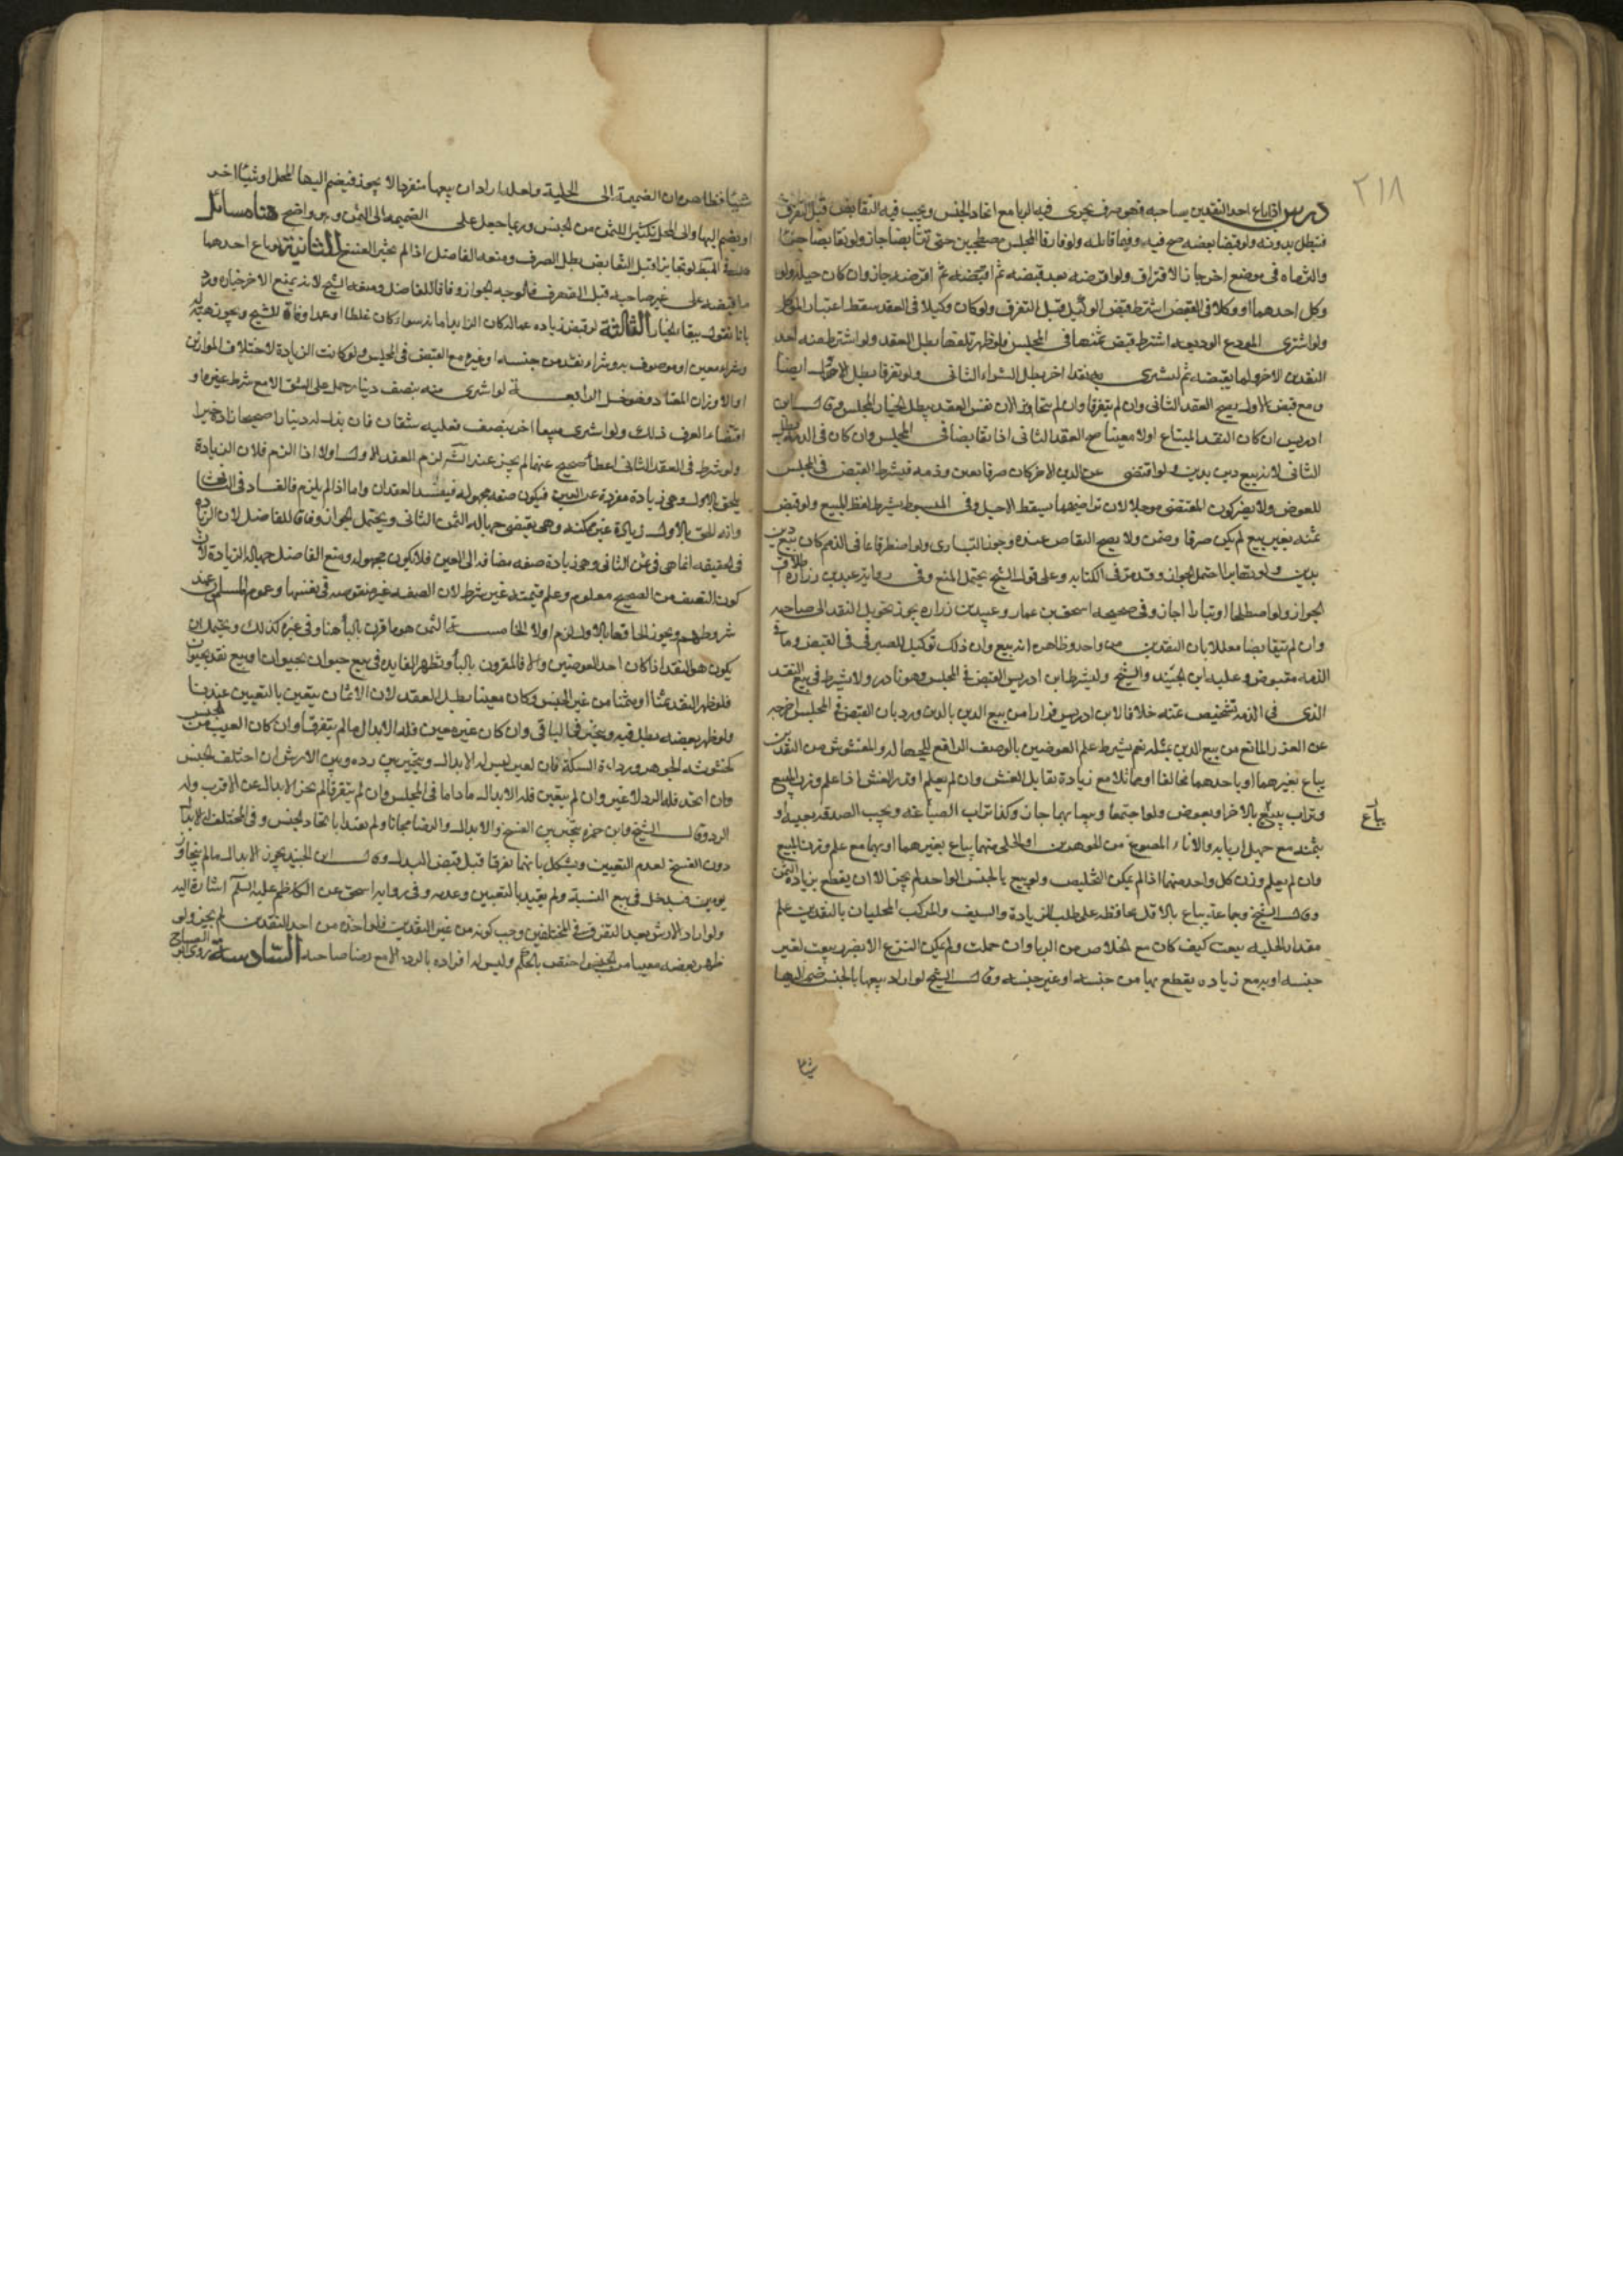 ٢١٨
درس اذا باع احد النقدين بصاحبه فهو صرف يجرى فيه الربا مع اتحاد الجنس ويجب فيه التقابض قبل التفرق
فيبطل بدونه ولو قبضا بعضه صح فيه وفيما قابله ولو فارقا المجلس مصطحبين حتى تقابضا جاز ولو تقابضا
والتماه فى موضع اخر جاز الافتراق ولو اقرضه بعد قبضه ثم اقبضه ثم اقرضه جاز وان كان حيلة ولو
وكل احدهما او وكلا فى القبض اشترط قبض الوكيل قبل التفرق ولو كان وكيلا فى العقد سقط اعتبار الموكل
ولو اشترى المودع الوديعه اشترط قبض ثمنها فى المجلس فلو ظهر تلفها بطل العقد ولو اشترط منه احد
النقدين الاخر ولما يقبضه ثم اشترى به نقدا اخر بطل الشراء الثانى ولو تفرقا بطل الاول ايضا
ومع قبض الاول يصح العقد الثانى وان لم يتفرقا وان لم يتخايرا لان نفس العقد يبطل خيار المجلس وقال ابن
ادريس ان كان النقد المبتاع اولا معينا صح العقد الثانى اذا تقابضا فى المجلس وان كان فى الذمة بطل
الثانى لانه بيع دين بدين ولو اقتضى عن الدين الاخر كان صرفا بعين وذمه فيشترط القبض فى المجلس
للعوض ولا يضر كون المقتضى موجلا لان تراضيهما يسقط الاجل وفى المبسوط يشترط لفظ البيع ولو قبض
ثمنه بغير بيع لم يكن صرفا وضمن ولا يصح التقاص عنده وجوزنا التبارى ولو اصطرفا عما فى الذمم كان بيع دين
بدين ولو تهاتبا احتمل الجواز وقد مر فى الكتابه وعلى قول الشيخ يحتمل المنع وفى روايه عبيد بن زراره اطلاق
الجواز ولو اصطلحا او تبارا اجاز وفى صحيحه اسحق بن عمار وعبيد بن زراره يجوز تحويل النقد الى صاحبه
وان لم يتقابضا معللا بان النقدين من واحد وظاهره انه بيع وان ذلك توكيل للصيرفى فى القبض وما فى
الذمه مقبوض وعليه ابن الجنيد والشيخ ولم يشترط ابن ادريس القبض فى المجلس وهو نادر ولا يشترط فى بيع النقد
الذى فى الذمه تشخيص ثمنه خلافا لابن ادريس فرارا من بيع الدين بالدين ورد بان القبض فى المجلس اخرجه
عن العذر المانع من بيع الدين بمثله نعم يشترط علم العوضين بالوصف الرافع للجهاله والمغشوش من النقدين
يباع بغيرهما او باحدهما مخالفا او مماثلا مع زيادة تقابل الغش وان لم يعلم قدر الغش اذا علم وزن المبيع
وتراب يباع بالاخر او بعوض ولو اجتمعا وبيعا بهما جاز وكذا تراب الصياغه ويجب الصدقه بعينه او
بثمنه مع جهل اربابه والاناء المصوغ من الجوهرين او الحلى منهما يباع بغيرهما او بهما مع علم وزن المبيع
وان لم يعلم وزن كل واحد منهما اذا لم يمكن التخليص ولو بيع بالجنس الواحد لم يجز الا ان يقطع بزيادة الثمن
وقال الشيخ وجماعه يباع بالاقل محافظه على طلب الزيادة والسيف والمركب المحليان بالنقدين ان علم
مقدار الحليه بيعت كيف كان مع الخلاص من الربا وان جهلت ولم يمكن النزع الا بضرر بيعت بغير
جنسه او به مع زياده يقطع بها من جنسه او غير جنسه وقال الشيخ لو اراد بيعها بالجنس ضم اليها
يباع
شيئا فظاهره ان الضميمة الى الحلية ولعله اراد ان بيعها منفردا لا يجوز فيضم اليها المحل او شيئا اخر
او يضم اليها والى المحل تكثيرا للثمن من الجنس وربما جعل على الضميمه الى الثمن وهو واضح هنا مسائل
لو تخايرا قبل التقابض بطل الصرف ومنعه الفاضل اذا لم يخير الفسخ الثانية لو باع احدهما
ما قبضه على غير صاحبه قبل التفرق فالوجه الجواز وفاقا للفاضل ومنعه الشيخ لانه يمنع الاخر خياره ورد
بانا نقول ببقاء الخيار الثالثة لو قبض زياده عماله كان الزايد امانه سواء كان غلطا او عمدا وفاقا للشيخ ويجوز هبته
وشراء معين او موصوف به وشراء نقد من جنسه او غيره مع القبض فى المجلس ولو كانت الزيادة لاختلاف الموازين
او الاوزان المعتاد فهو حل الرابعة لو اشترى منه بنصف دينار حمل على الشق الا مع شرط غيره او
اقتضاء العرف ذلك ولو اشترى مبيعا اخر بنصف فعليه شقان فان بذل له دينارا صحيحا زاده خيرا
ولو شرط فى العقد الثانى اعطا صحيح عنهما لم يجز عند الشيخ لزم العقد الاول اولا اذا لزم فلان الزيادة
يلحق بالاول وهى زيادة مفردة عن العين فيكون صفه مجهوله فيفسد العقدان واما اذا لم يلزم فالفساد فى الثانى
وانه للحق بالاول زيادة غير ممكنه وهى يقتضى جهاله الثمن الثانى ويحتمل الجواز وفاقا للفاضل لان الزياده
فى الحقيقه انما هى فى ثمن الثانى وهى زيادة صفه مضافه الى العين فلا يكون مجهوله ومنع الفاضل جهاله الزيادة لان
كون النصف من الصحيح معلوم وعلم قيمته غير شرط لان الصفه غير منقوصه فى نفسها وعموم المسلمون عند
شروطهم ويجوز الحاقها بالاول لزم اولا الخامسة الثمن هو ما قرن بالبأ هنا وفى غيره كذلك ويحتمل ان
يكون هو النقد اذا كان احد العوضين والا فالمقرون بالبأ وتظهر الفايده فى بيع حيوان بحيوان او بيع نقد بحيوان
فلو ظهر النقد ثمنا او مثمنا من غير الجنس وكان معينا بطل العقد لان الاثمان يتعين بالتعيين عندنا
ولو ظهر بعضه بطل فيه ويتخير فى الباقى وان كان غير معين فله الابدال ما لم يتفرقا وان كان العيب من الجنس
كخشونه الجوهر ورداءة السكة فان تعين ليس له الابدال ويتخير بين رده وبين الارش ان اختلف الجنس
وان اتحد فله الرد لا غير وان لم يتعين فله الابدال ما داما فى المجلس وان لم يتفرقا لم يجز الابدال عن الاقرب وله
الرد وقال الشيخ وابن حمزه يتخير بين الفسخ والابدال والرضا مجانا ولم يقيدا باتحاد الجنس وفى المختلف له الابدال
دون الفسخ لعدم التعيين ويشكل بانهما تفرقا قبل قبض البدل وقال ابن الجنيد يجوز الابدال ما لم يتجاوز
يومين فيدخل فى بيع النسية ولم يقيد بالتعيين وعدمه وفى روايه اسحق عن الكاظم عليه السلم اشارة اليه
ولو اراد الارش بعد التفرق فى المختلفين وجب كونه من غير النقدين فلو اخذه من احد النقدين لم يجز ولو
ظهر بعضه معيبا من الجنس اختص بالحكم وليس له افراده بالرد الا مع رضا صاحبه السادسة روى ابو الصباح